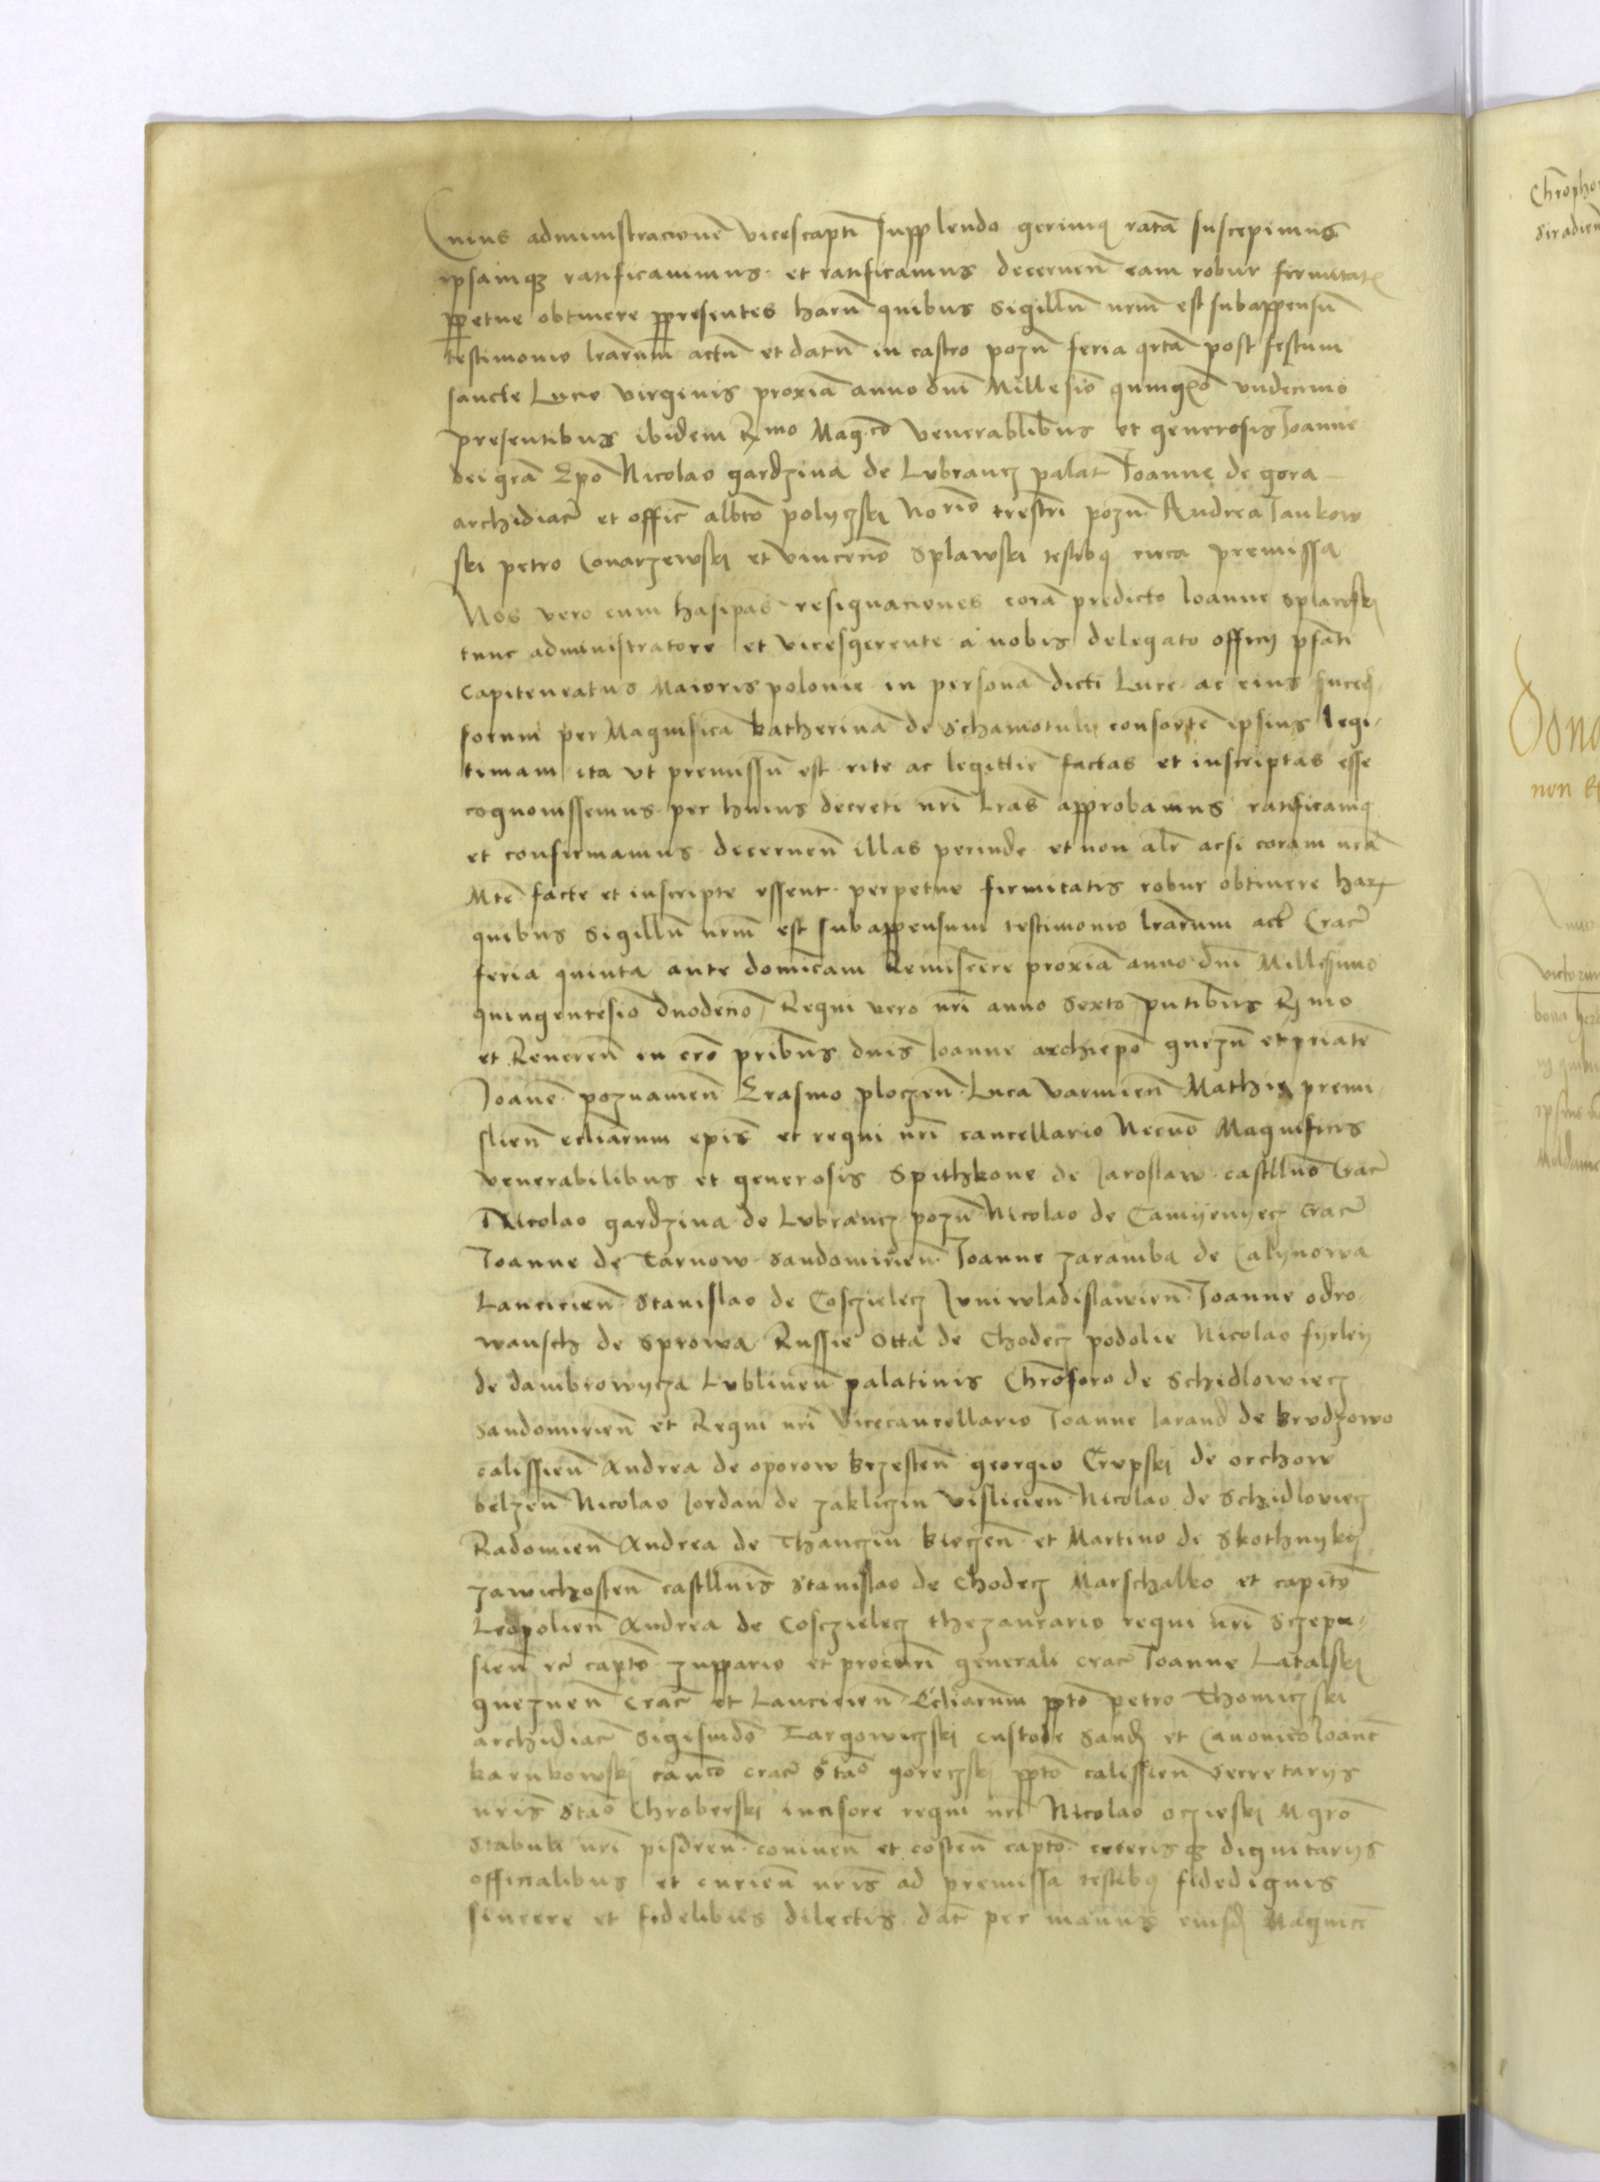 Cuius administracionē vicescaptī supplendo gerimꝰ ratā suscepimus
ipsamqꝫ ratificavimus et ratificamus decernen̄ eam robur firmitatꝭ
ꝑpetue obtinere ꝑ presentes harū quibus Sigillū nrm̄ est subappensū
testimonio lrarum actū et datū in castro pozn̄ feria qrta post festum
sancte Lucie virginis proxiā anno dnī Millesiō quingͤo vndecimo
presentibus ibidem Rmo Magco venerabilibus et generosis Ioanne
dei grā Epō Nicolao gardzina de Lvbrancz palat̄ Ioanne de gora
archidiac̄ et offic̄ albtō polyczski Noriō trestrī pozn̄ Andrea Iankow
ski petro Conarzewski et Vincencio Splawski testibꝰ circa premissa
Nos vero cum hasipas resignaciones corā predicto Ioanne Splawski
tunc administratore et vicesgerente a nobis delegato officij pfati
Capiteneatus Maioris polonie in personā dicti Luce ac eius succes
sorum per Magnificā katherinā de Schamotuli consortē ipsius legi
timam ita vt premissū est rite ac legittie factas et inscriptas esse
cognovissemus per huius decreti nrī lras approbamus ratificamꝰ
et confirmamus decernen̄ illas perinde et non alr̄ acsi coram nrā
Mte facte et inscripte essent perpetue firmitatis robur obtinere harꝝ
quibus Sigillū nrm̄ est subappensum testimonio lrarum act̄ Crac̄
feria quinta ante domicam Reminiscere proxiā anno dnī Millesimo
quingentesiō duodeciō Regni vero nrī anno Sexto pntibus Rmo
et Reveren̄ in cro pribus dnis Ioanne archiepō gnezn̄ et priate
Ioane poznanien̄ Erasmo ploczen̄ Luca varmien̄ Mathia premi
slien̄ ecliarum epis et regni nrī cancellario Necnō Magnificis
venerabilibus et generosis Spithkone de Iaroslaw castllno Crac̄
Nicolao gardzina de Lvbrancz pozn̄ Nicolao de Camyenyecz Crac̄
Ioanne de Tarnow Sandomirien̄ Ioanne zaramba de Calynowa
Lancicien̄ Stanislao de Cosczielecz Iuniwladislawien̄ Ioanne odro
wansch de Sprowa Russie Otta de Chodecz podolie Nicolao fyrley
de dambrowycza Lvblinen̄ palatinis Chrōforo de Schidlowiecz
Sandomirien̄ et Regni nrī Vicecancellario Ioanne Iarand de Brvdzowo
calissien̄ Andrea de oporow brzesten̄ georgio Crupski de orchow
belzen̄ Nicolao Iordan de zakliczin vislicien̄ Nicolao de Schidloviecz
Radomien̄ Andrea de Thanczin biecen̄ et Martino de Skothnyky
zawichosten̄ castllnis Stanislao de Chodecz Marschalko et capitō
Leopolien̄ Andrea de Cosczielecz thezaurario regni nrī Sczepu
sien̄ etc̄ captō zuppario et procurī generali Crac̄ Ioanne Latalski
gneznen̄ Crac̄ et Lancicien̄ Ecliarum pptō petro Thomiczski
archidiac̄ Sigismdō Targowiczski custode Sand et Canonico Ioane
karnkowski canco Crac̄ Stao goreczski pptō calissien̄ Secretarijs
nris Stao Chroberski incisore regni nrī Nicolao oczieski Mgro
Stabuli nrī pisdren̄ coninen̄ et costen̄ captō ceterisqꝫ dignitarijs
officialibus et curien̄ nris ad premissa testibꝰ fidedignis
sincere et fidelibus dilectis dat̄ per manus eiusd Magnici